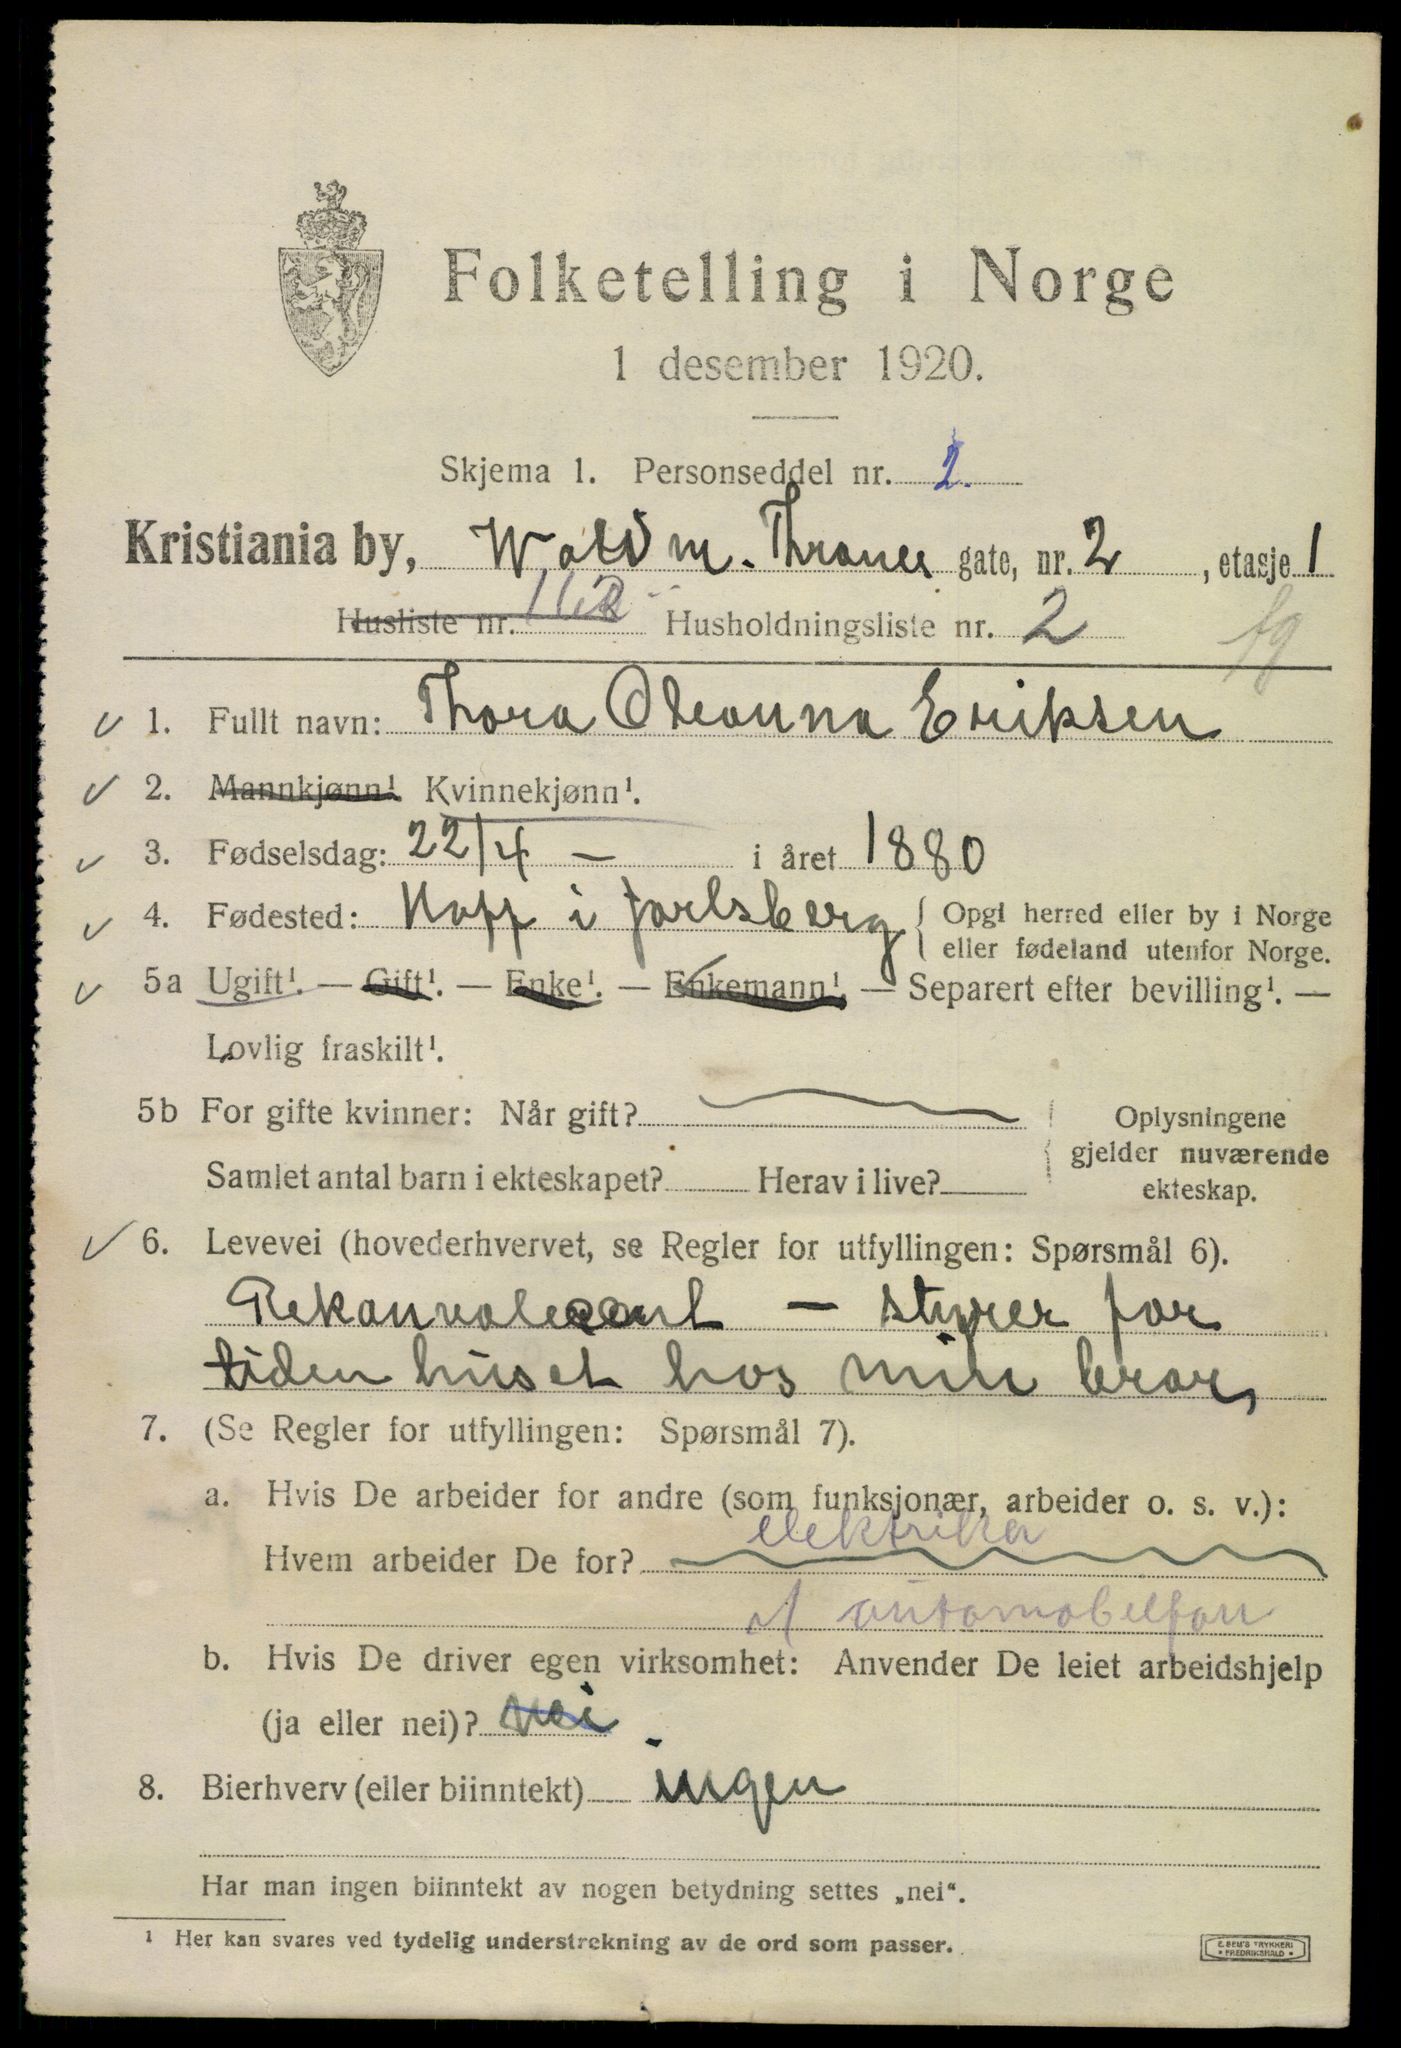 Folketelling i Norge
1 desember 1920.
Skjema 1. Personseddel nr. 2.
Kristiania by, Waldm. Thranes gate, nr. 2, etasje 1
Husliste nr. 112 Husholdningsliste nr. 2
1. Fullt navn: Thora Oleanna Eriksen
2. Mannkjønn¹. Kvinnekjønn¹.
3. Fødselsdag: 22/4 — i året 1880
4. Fødested: Hoff i Jarlsberg { Opgi herred eller by i Norge
eller fødeland utenfor Norge.
5a Ugift¹. — Gift¹. — Enke¹. — Enkemann¹. — Separert efter bevilling¹. —
Lovlig fraskilt¹.
5b For gifte kvinner: Når gift?
Samlet antal barn i ekteskapet? Herav i live?
Oplysningene
gjelder nuværende
ekteskap.
6. Levevei (hovederhvervet, se Regler for utfyllingen: Spørsmål 6).
Rekonvalecent — styrer for
tiden huset hos min bror,
7. (Se Regler for utfyllingen: Spørsmål 7).
a. Hvis De arbeider for andre (som funksjonær, arbeider o. s. v.):
elektriker
Hvem arbeider De for?
automobilforr
b. Hvis De driver egen virksomhet: Anvender De leiet arbeidshjelp
(ja eller nei)? Nei
8. Bierhverv (eller biinntekt) ingen
Har man ingen biinntekt av nogen betydning settes „nei“.
¹ Her kan svares ved tydelig understrekning av de ord som passer.
E. SEM'S TRYKKERI
• FREDRIKSHALD •